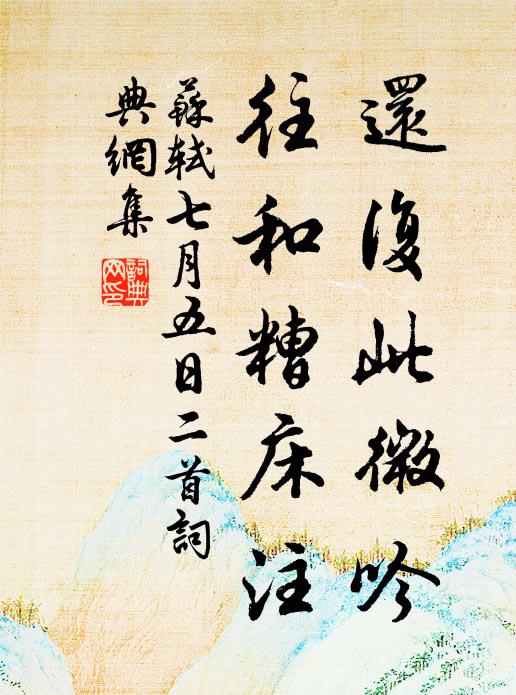 還復此微吟
往和糟床注
蘇軾七月五日二首詞
典網集
詞典網印